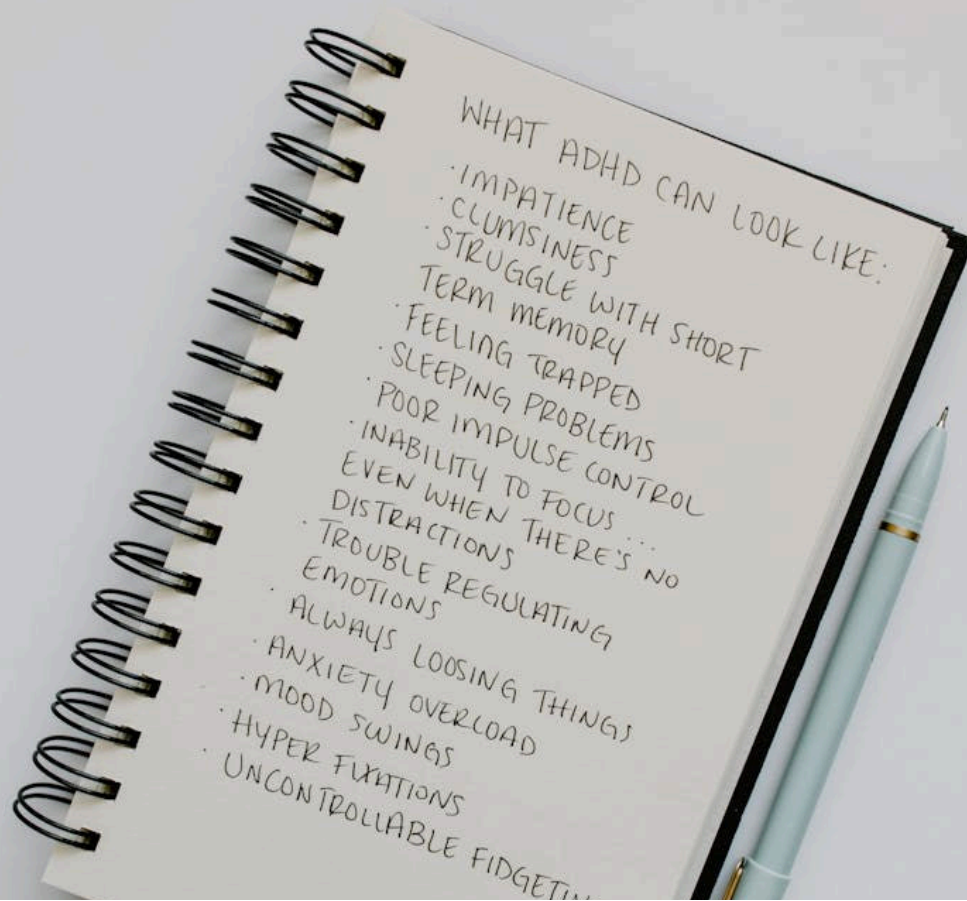 WHAT ADHD CAN LOOK LIKE:
· IMPATIENCE
· CLUMSINESS
· STRUGGLE WITH SHORT
TERM MEMORY
· FEELING TRAPPED
· SLEEPING PROBLEMS
· POOR IMPULSE CONTROL
· INABILITY TO FOCUS...
EVEN WHEN THERE'S NO
DISTRACTIONS
· TROUBLE REGULATING
EMOTIONS
· ALWAYS LOOSING THINGS
· ANXIETY OVERLOAD
· MOOD SWINGS
· HYPER FIXATIONS
· UNCONTROLLABLE